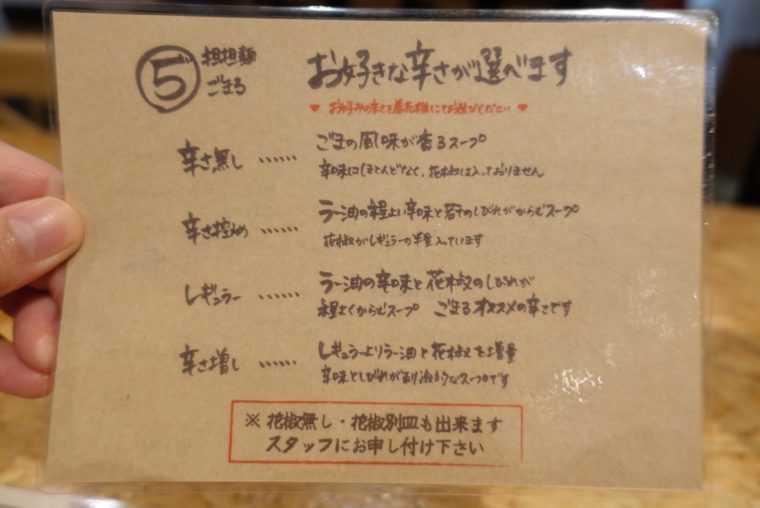 ご 担担麺
ごまる
お好きな辛さが選べます
♥ お好みの辛さを番花椒にてお選びください ♥
辛さ無し ……
ごまの風味が香るスープ
辛味はほとんどなく、花椒は入っておりません
辛さ控め ……
ラー油の程よい辛味と若干のしびれがからむスープ
花椒がレギュラーの半量入っています
レギュラー ……
ラー油の辛味と花椒のしびれが
程よくからむスープ ごまるオススメの辛さです
辛さ増し ……
レギュラーよりラー油と花椒を増量
辛味としびれがあり刺激的なスープです
※ 花椒無し・花椒別皿も出来ます
スタッフにお申し付け下さい